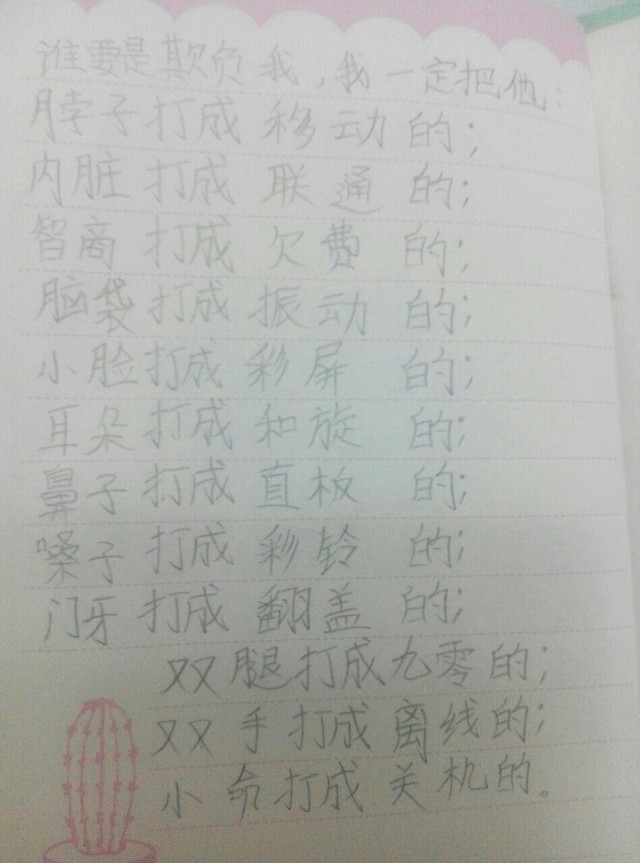 谁要是欺负我，我一定把他：
脖子打成移动的；
内脏打成联通的；
智商打成欠费的；
脑袋打成振动的；
小脸打成彩屏的；
耳朵打成和旋的；
鼻子打成直板的；
嗓子打成彩铃的；
门牙打成翻盖的；
双腿打成九零的；
双手打成离线的；
小命打成关机的。